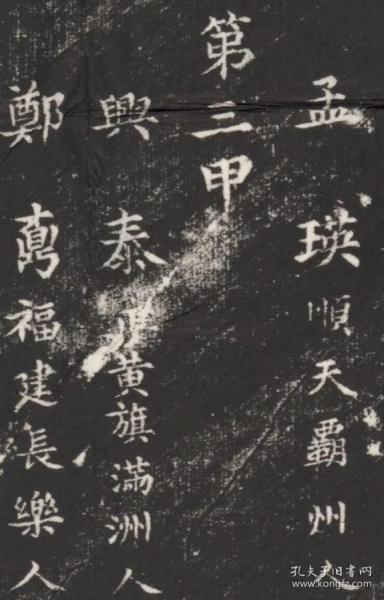 孟瑛順天霸州人
第三甲
興泰正黃旗滿洲人
鄭福建長樂人
孔夫子旧书网
www.kongfz.com